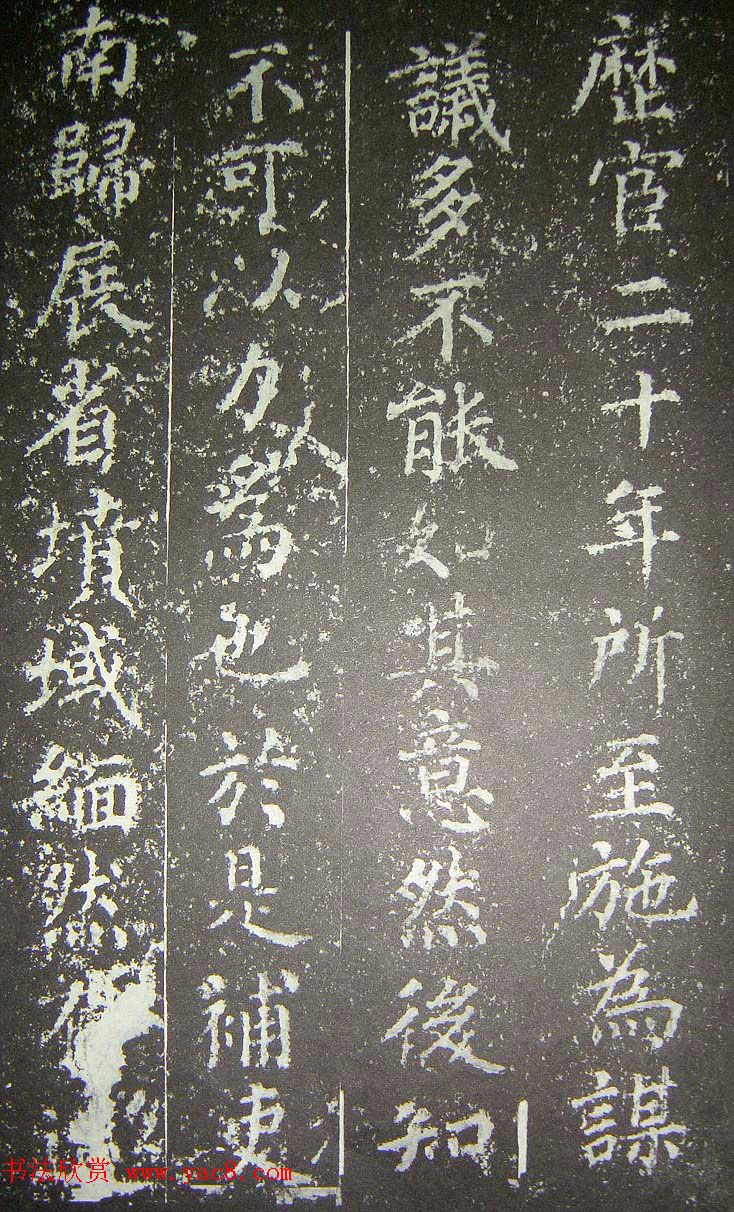 歴官二十年所至施為謀
議多不能如其意然後知
不可以力爲也於是補吏
南歸展省墳域緬然
书法欣赏 www.yac8.com